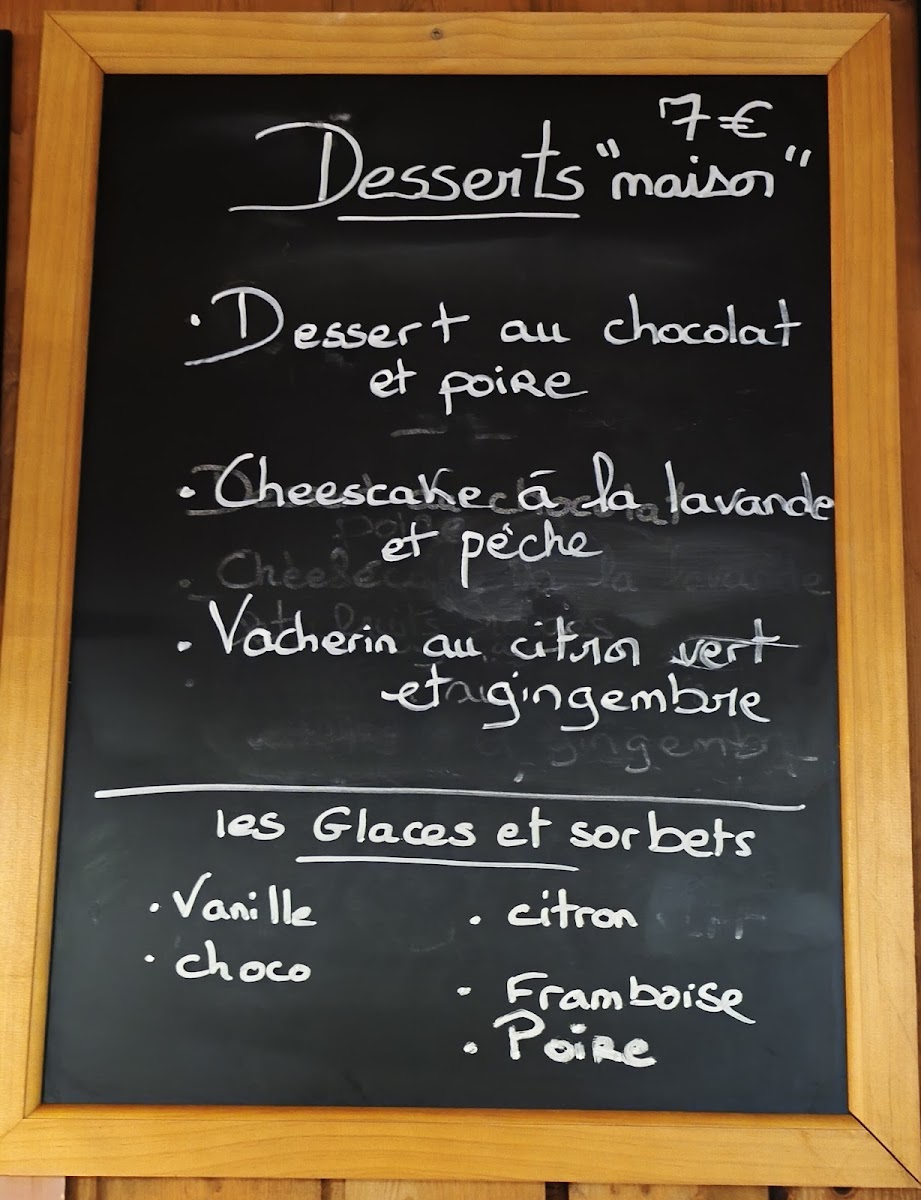 7€
Desserts "maison"
• Dessert au chocolat
et poire
• Cheescake à la lavande
et pêche
• Vacherin au citron vert
et gingembre
les Glaces et sorbets
• Vanille
• choco
• citron
• Framboise
• Poire